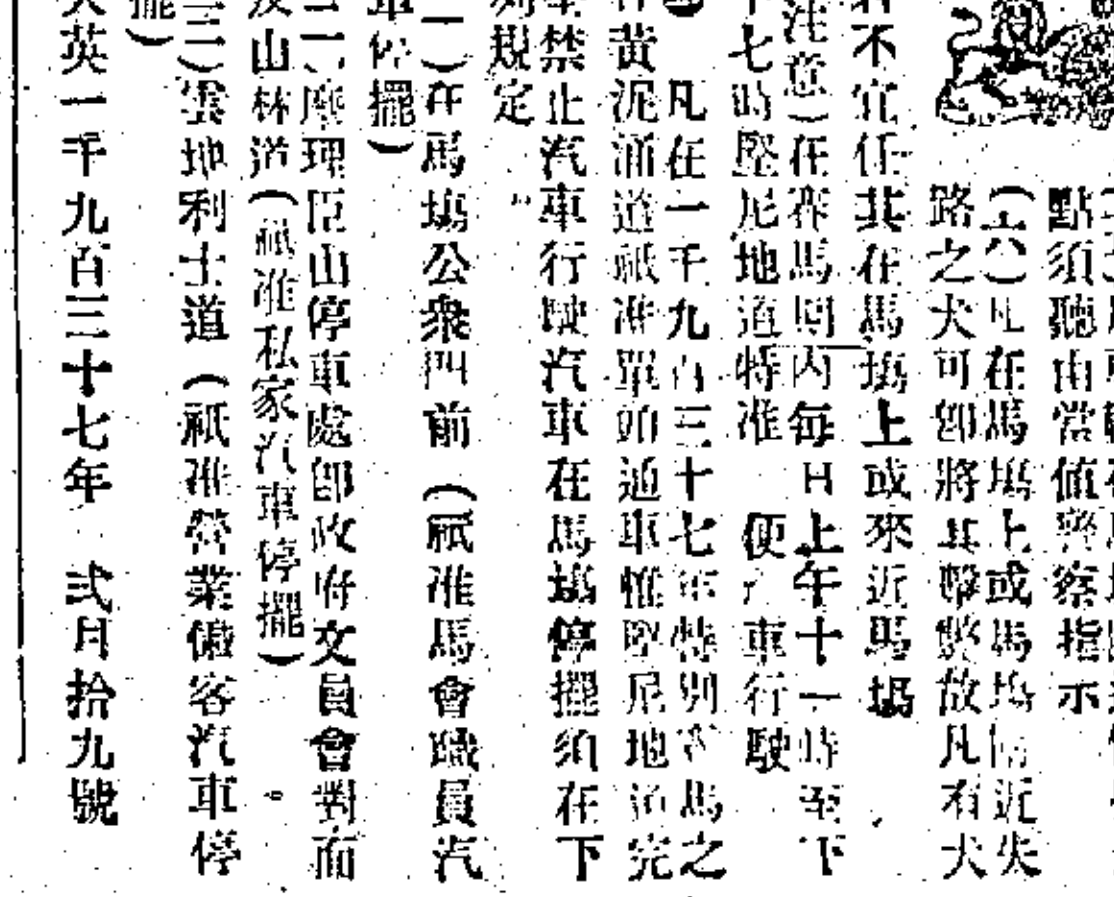 點須聽由當值警察指示
(六)凡在馬塲上或馬塲附近失
路之犬可卽將其擊斃故凡有犬
者不宜任其在馬塲上或來近馬塲
注意)在賽馬期內每日上午十一時至下
午七時堅尼地道特准 便 車行駛
凡在一千九百三十七年特別賽馬之
黃泥涌道祇准單頭通車惟堅尼地道完
禁止汽車行駛汽車在馬塲停擺須在下
列規定
(一)在馬塲公衆門前(祇准馬會職員汽
車停擺)
二)摩理臣山停車處卽政府文員會對面
及山林道(祇准私家汽車停擺)
(三)雲地利士道(祇准營業僱客汽車停
擺)
大英一千九百三十七年 弍月拾九號